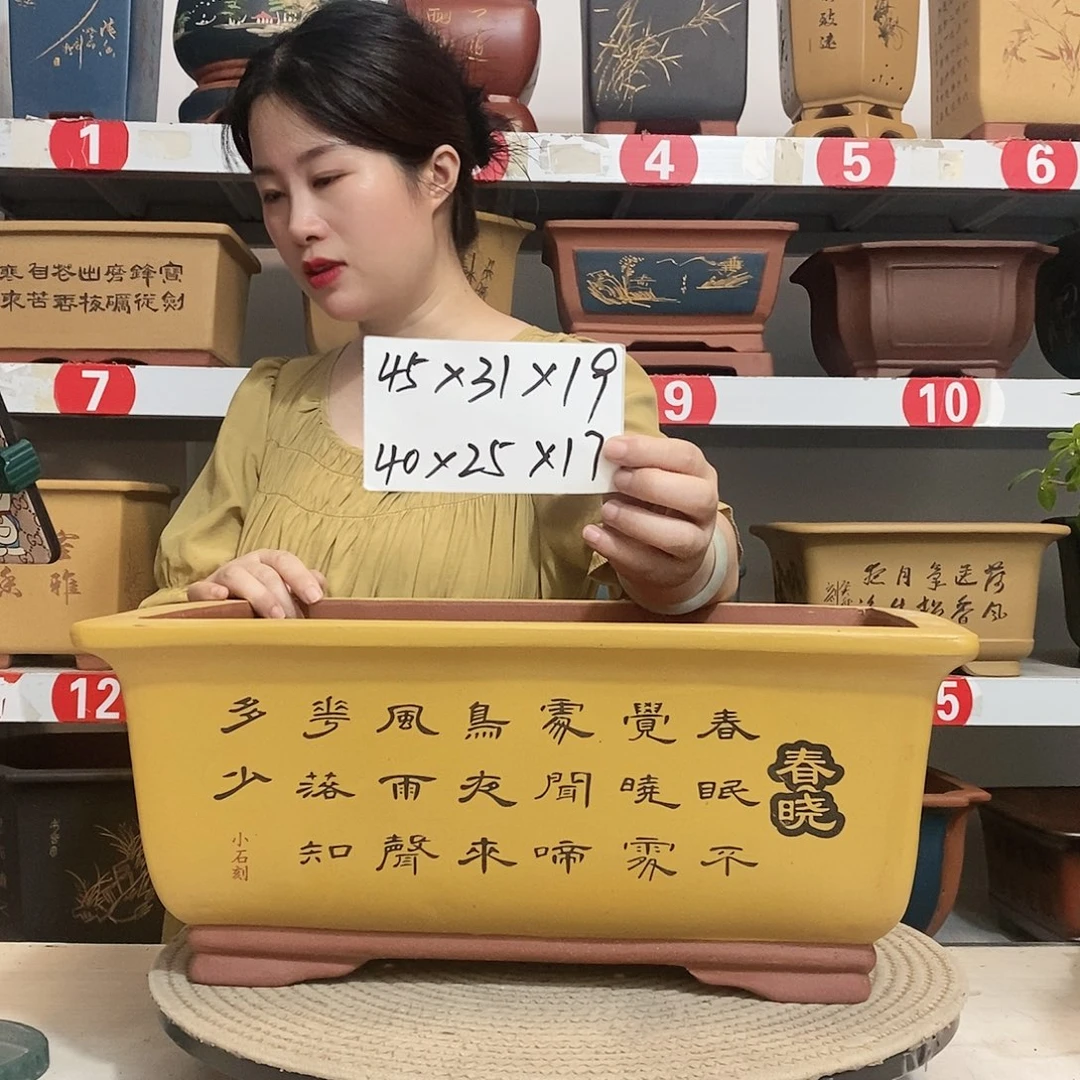 1
4
5
6
致遠
寶劍
鋒從
磨礪
出梅
花香
自苦
寒來
45×31×19
40×25×17
7
9
10
雅
荷风
送香
12
5
春晓
春眠不
覺曉處
處聞啼
鳥夜來
風雨聲
花落知
多少
小石刻